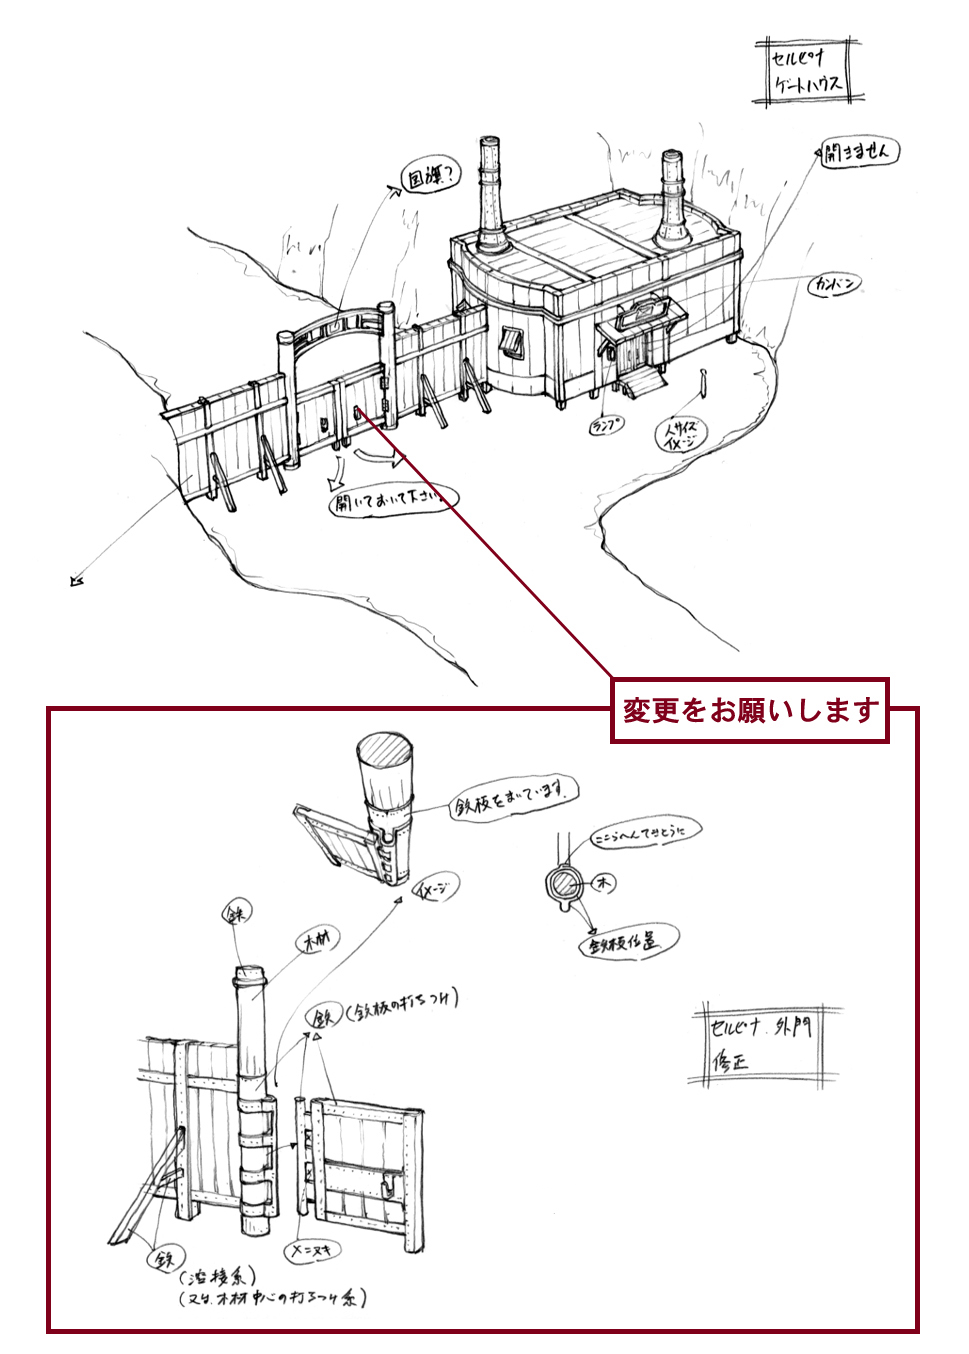 セルピナ
ゲートハウス
開きません
国旗?
カンバン
ランプ
人サイズ
イメージ
開いておいて下さい。
変更をお願いします
鉄板をまいています。
ここらへんてきとうに
木
イメージ
鉄板位置
鉄
木材
鉄(鉄板の打ちつけ)
セルピナ.外門
修正
メニヌキ
鉄
(溶接系)
(又は、木材中心の打ちつけ系)